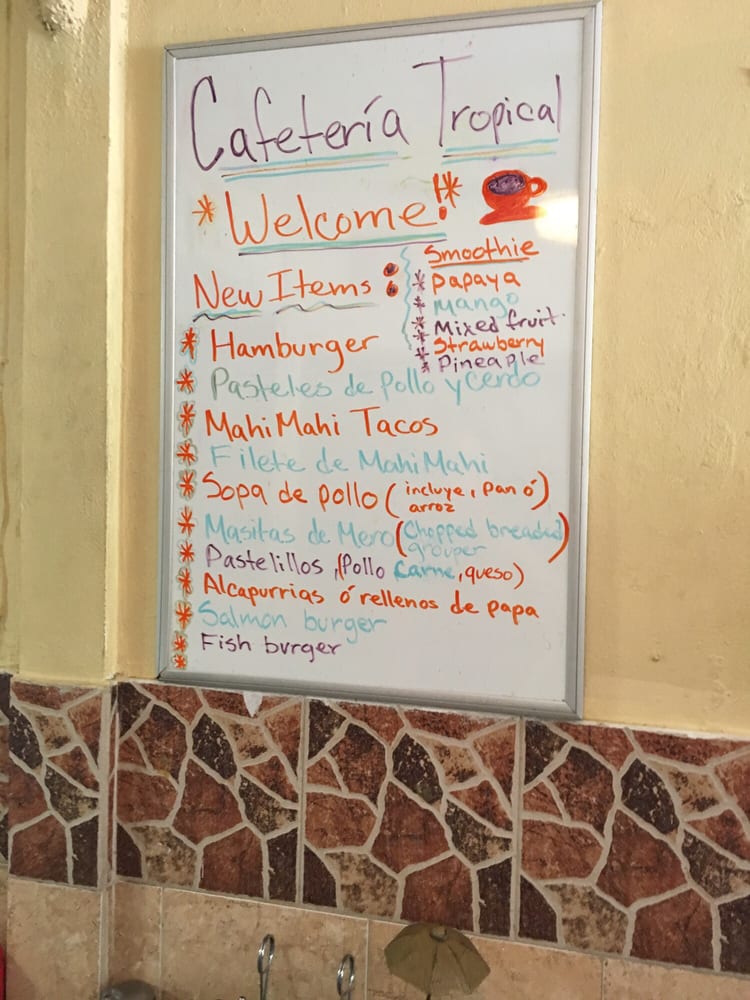 Cafetería Tropical
* Welcome! *
New Items :
* Hamburger
* Pasteles de pollo y cerdo
* Mahi Mahi Tacos
* Filete de Mahi Mahi
* Sopa de pollo (incluye, pan ó
arroz)
* Masitas de Mero (Chopped breaded
grouper)
* Pastelillos, (Pollo Carne, queso)
* Alcapurrias ó rellenos de papa
* Salmon burger
* Fish burger
*
Smoothie
* Papaya
* Mango
* Mixed fruit
* Strawberry
* Pineaple